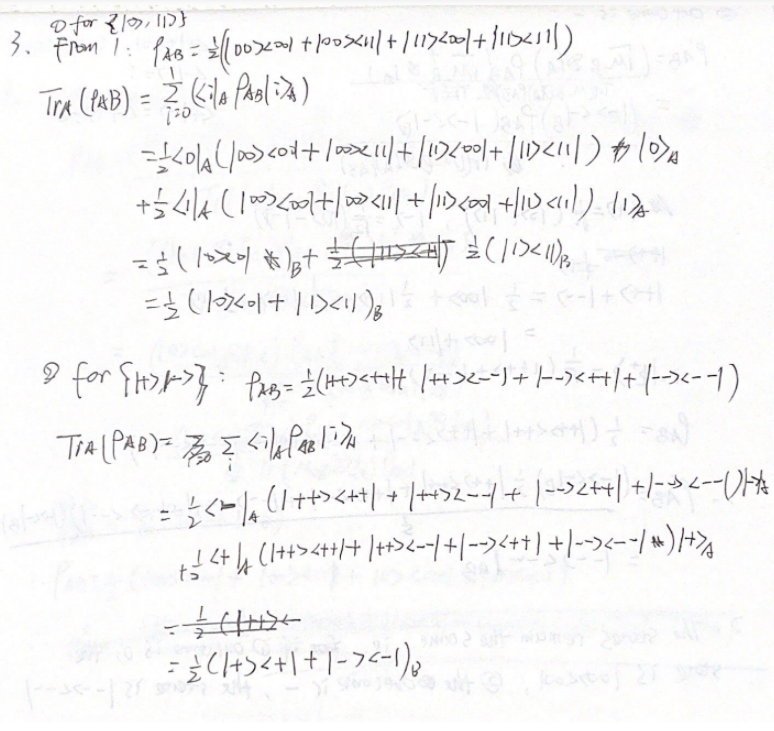 ① for {|0>, |1>}
3. From 1: ρ_AB = ½(|00><00| + |00><11| + |11><00| + |11><11|)
Tr_A (ρ_AB) = Σ_{i=0}^{1} (<i|_A ρ_AB |i>_A)
= ½ <0|_A (|00><00| + |00><11| + |11><00| + |11><11|) |0>_A
+ ½ <1|_A (|00><00| + |00><11| + |11><00| + |11><11|) |1>_A
= ½ (|0><0|)_B + ½ (|1><1|)_B
= ½ (|0><0| + |1><1|)_B
② for {|+>, |->} : ρ_AB = ½(|++><++| + |++><--| + |--><++| + |--><--|)
Tr_A (ρ_AB) = Σ_i <i|_A ρ_AB |i>_A
= ½ <-|_A (|++><++| + |++><--| + |--><++| + |--><--|) |->_A
+ ½ <+|_A (|++><++| + |++><--| + |--><++| + |--><--|) |+>_A
= ½ (|++><
= ½ (|+><+| + |-><-|)_B